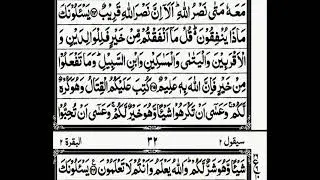 مَعَهٗ مَتٰى نَصْرُ اللّٰهِ ؕ اَلَاۤ اِنَّ نَصْرَ اللّٰهِ قَرِيْبٌ ۝ يَسْـَٔلُوْنَكَ
مَاذَا يُنْفِقُوْنَ ؕ قُلْ مَاۤ اَنْفَقْتُمْ مِّنْ خَيْرٍ فَلِلْوَالِدَيْنِ وَ
الْاَقْرَبِيْنَ وَالْيَتٰمٰى وَالْمَسٰكِيْنِ وَابْنِ السَّبِيْلِ ؕ وَمَا تَفْعَلُوْا
مِنْ خَيْرٍ فَاِنَّ اللّٰهَ بِهٖ عَلِيْمٌ ۝ كُتِبَ عَلَيْكُمُ الْقِتَالُ وَهُوَ كُرْهٌ
لَّكُمْ ۚ وَعَسٰۤى اَنْ تَكْرَهُوْا شَيْـًٔا وَّهُوَ خَيْرٌ لَّكُمْ ۚ وَعَسٰۤى اَنْ تُحِبُّوْا
سيقول ٢ ٣٢ البقرة ٢
شَيْـًٔا وَّهُوَ شَرٌّ لَّكُمْ ؕ وَاللّٰهُ يَعْلَمُ وَاَنْتُمْ لَا تَعْلَمُوْنَ ۝ يَسْـَٔلُوْنَكَ